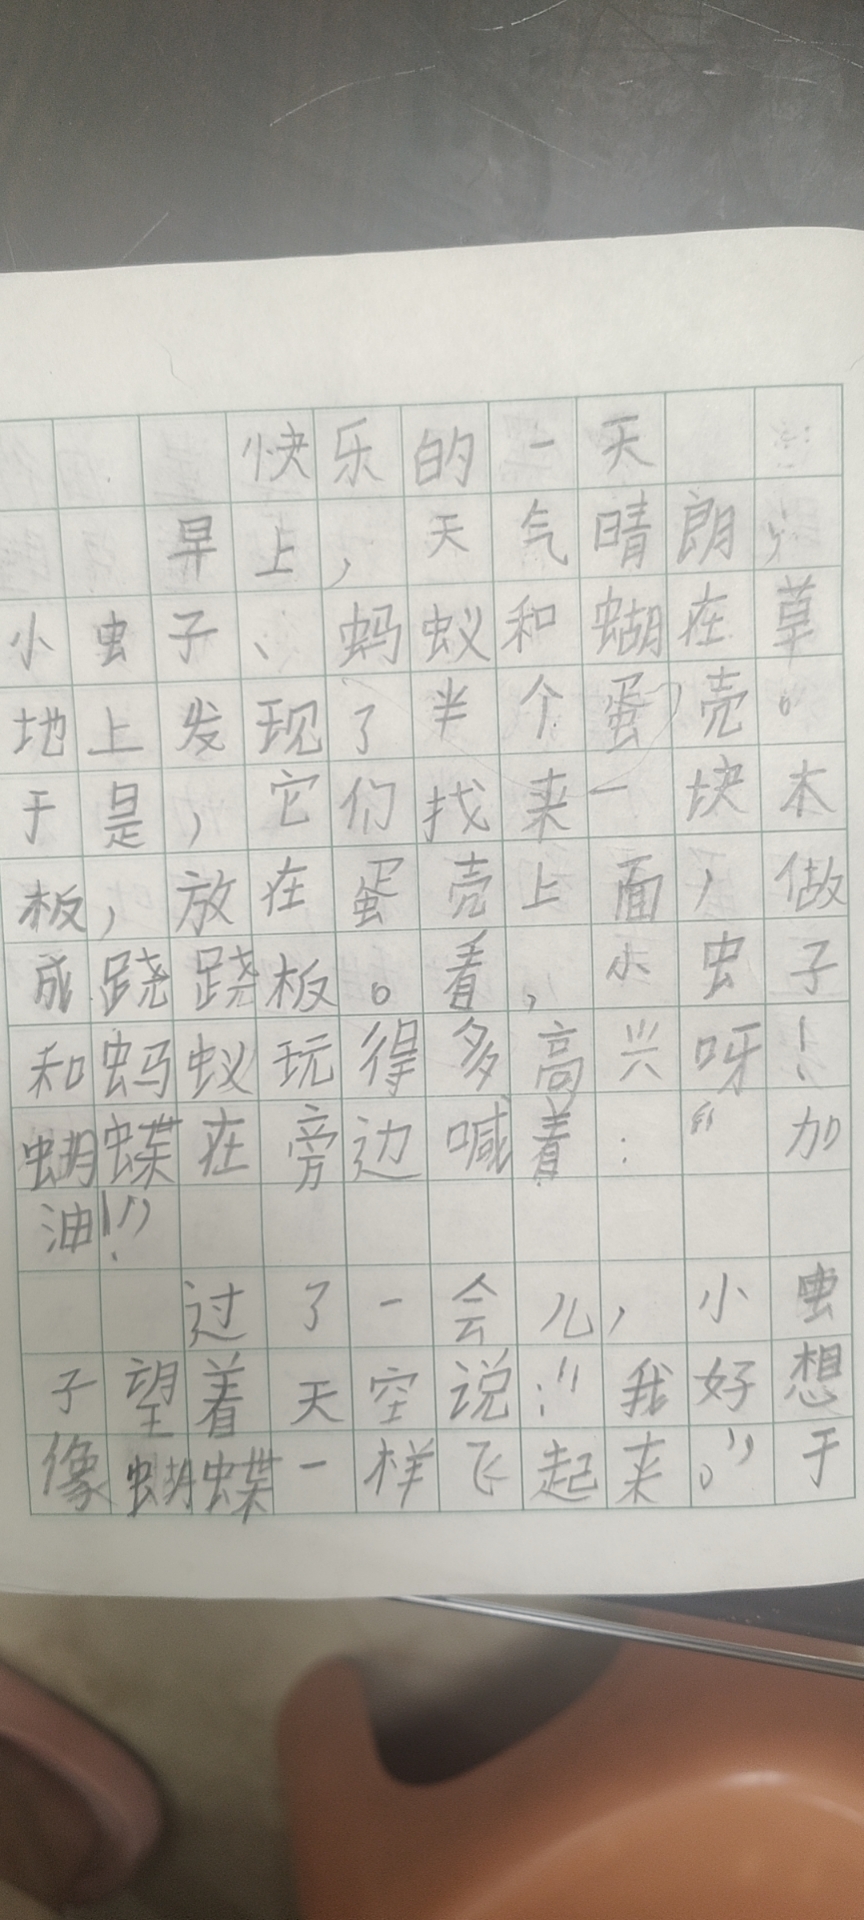 快乐的一天
早上，天气晴朗，
小虫子、蚂蚁和蝴在草
地上发现了半个蛋壳。
于是，它们找来一块木
板，放在蛋壳上面，做
成跷跷板。看，小虫子
和蚂蚁玩得多高兴呀！
蝴蝶在旁边喊着：“加
油！”
过了一会儿，小虫
子望着天空说：“我好想
像蝴蝶一样飞起来。”于